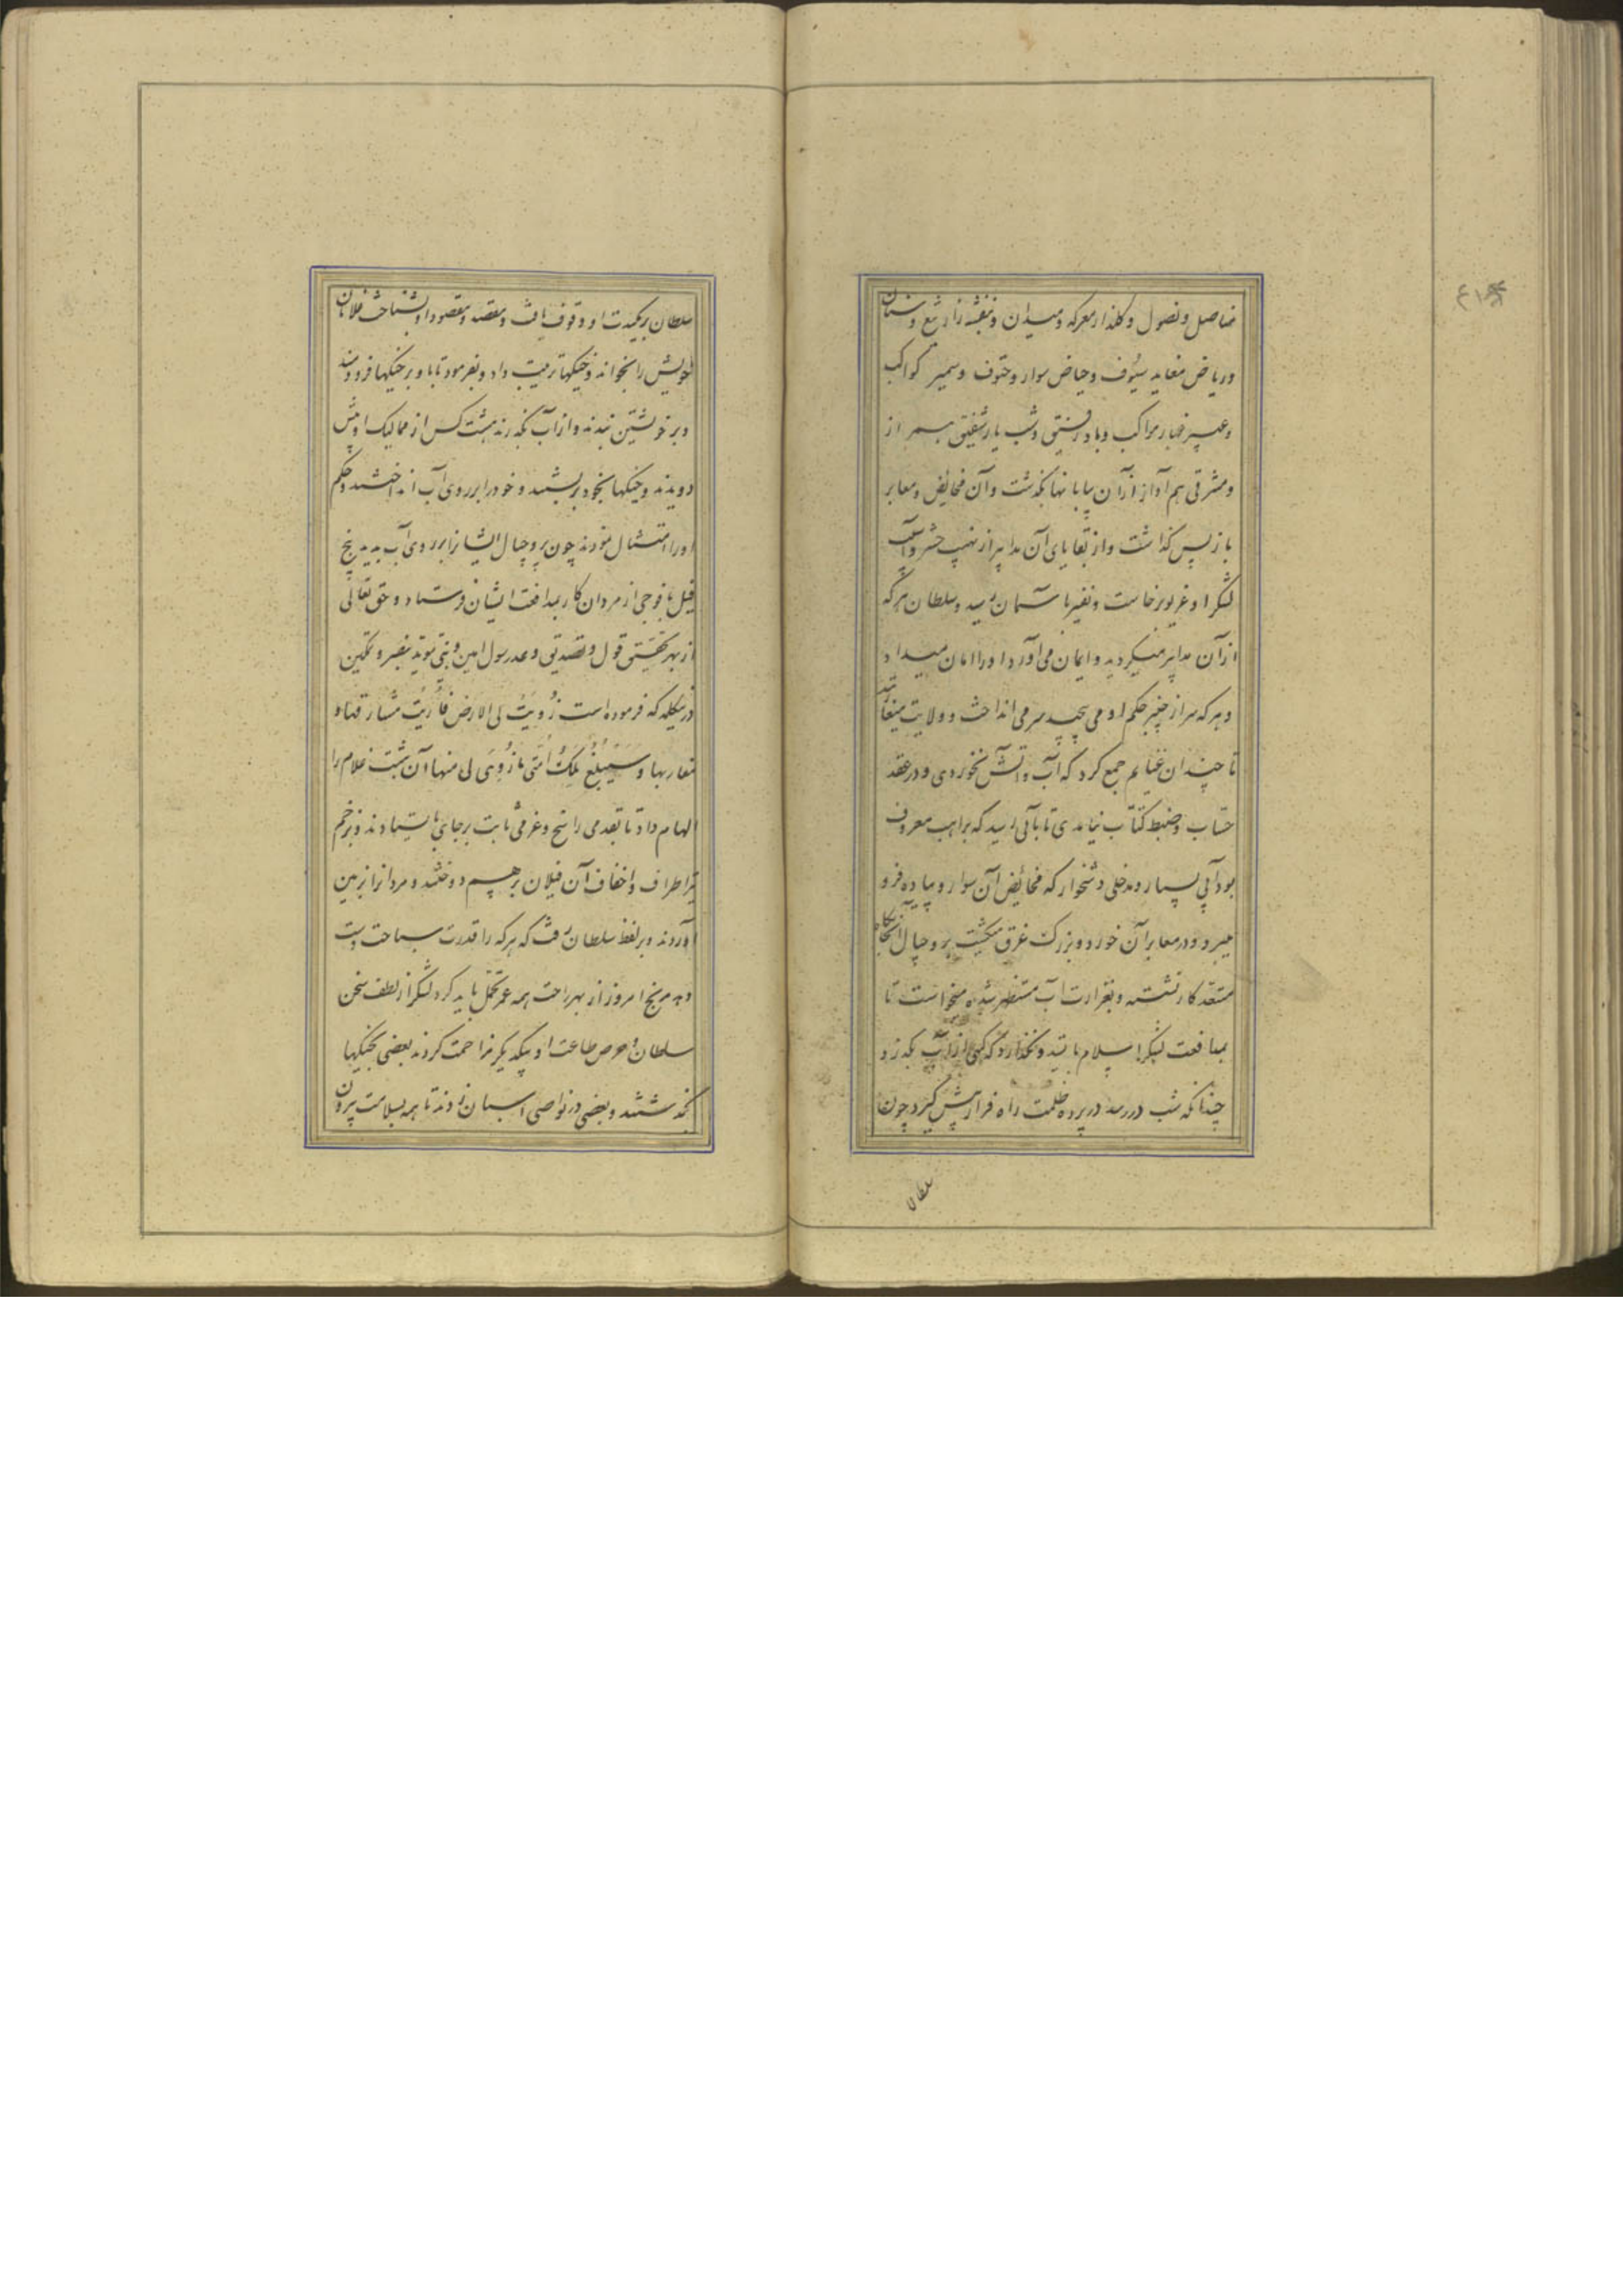 مناصل و نصول و گلذار معرکه و میدان و بنفشه زار تیغ و سنان
و ریاض مغاید سیوف و حیاض سوار و حتوف و سمیر کواکب
و عبیر غبار مواکب و باد رفیق و شب یار شفیق بسر از
و مشرقی هم آواز از آن بیابانها بگذشت و آن مخائض و معابر
باز پس گذاشت و از بقایای آن مدابیر از نهیب حشر و آسیب
لشگر او غریو برخاست و نفیر با آسمان رسید و سلطان هرکه
از آن مدابیر میگردید و ایمان می آورد او را امان میداد
و هرکه سر از چنبر حکم او می پیچید سر می انداخت و ولایت میغارتید
تا چندان غنایم جمع کرد که آب و آتش نخوردی و در عقد
حساب و ضبط کتاب نیامدی تا بآبی رسید که براهب معروف
بود آبی بسیار و مدخلی دشخوار که مخائض آن سوار و پیاده فرو
میبرد و در معابر آن خورد و بزرگ غرق میگشت بروجیال آنجایگاه
مستعد کار نشسته و بغزارت آب مستظهر شده میخواست تا
بمدافعت لشگر اسلام بایستد و نگذارد که کسی از آن آب بگذرد
چندانکه شب در رسد در پرده ظلمت راه فرار پیش گیرد چون
سلطان
سلطان بر مکیدت او وقوف یافت و مقصد و مقصود او بشناخت غلامان
خویش را بخواند و خیکها ترتیب داد و بفرمود تا باد بر خیکها فرو دمند
و بر خویشتن بندند و از آب بگذرند هشت کس از ممالیک او پیش
دویدند و خیکها بخود بر بستند و خود را بر روی آب انداختند و حکم
او را امتثال نمودند چون بروجیال ایشان را بر روی آب بدید پنج
فیل با فوجی از مردان کار بمدافعت ایشان فرستاد و حق تعالی
از بهر تحقیق قول و تصدیق وعد رسول امین و نبی موید بنصر و تمکین
در نیکلمه که فرموده است زُویَت لی الارض فَأُریتُ مشارقها و
مغاربها و سَیَبلُغُ مُلکُ اُمَّتی ما زُوِیَ لی منها آن هشت غلام را
الهام داد تا بقدمی راسخ و عزمی ثابت بر جای بایستادند و بزخم
تیر اطراف و اخفاف آن فیلان بر هم دوختند و مردانرا بزمین
آوردند و بر لفظ سلطان رفت که هرکه را قدرت سباحت دست
دهد رنج امروز از بهر راحت همه عمر تحمل باید کرد لشگر از لطف سخن
سلطان و حرص طاعت او بیکدیگر مزاحمت کردند بعضی بخیکها
بگذشتند و بعضی در نواصی اسبان زدند تا همه بسلامت بیرون